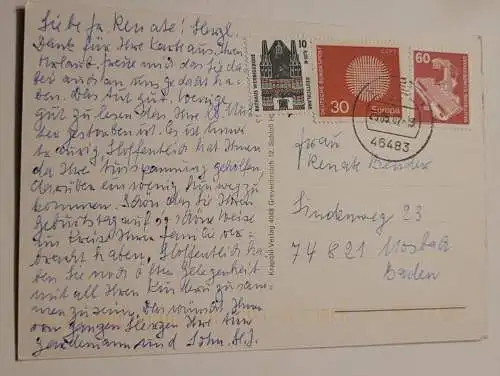 Liebe Fr. Renate! Herzl.
Dank für Ihre Karte aus Ihrem
Urlaub, freue mich das Sie da
bei auch an uns gedacht ha-
ben. Das Aut gut, wenige
gut zu lesen das Ihre lb. Mut-
ter gestorben ist. Es ist immer
traurig. Hoffentlich hat Ihnen
da Ihre Ausspannung geholfen,
darüber ein wenig hinweg zu
kommen. Schön das Sie Ihren
Geburtstag auf schöne Weise
im Kreise Ihrer Familie ver-
bracht haben. Hoffentlich ha-
ben Sie noch öfter Gelegenheit
mit all Ihren Kindern zusam-
men zu sein. Das wünscht Ihnen
von ganzen Herzen Ihre
und Sohn
Krapohl-Verlag 4048 Grevenbroich 12, Schloß
RATHAUS WERNIGERODE
10
0,05 €
DEUTSCHLAND
DEUTSCHE BUNDESPOST
CEPT
30
Europa
60
46483
Frau
Renate Bender
Lindenweg 23
74821 Mosbach
Baden